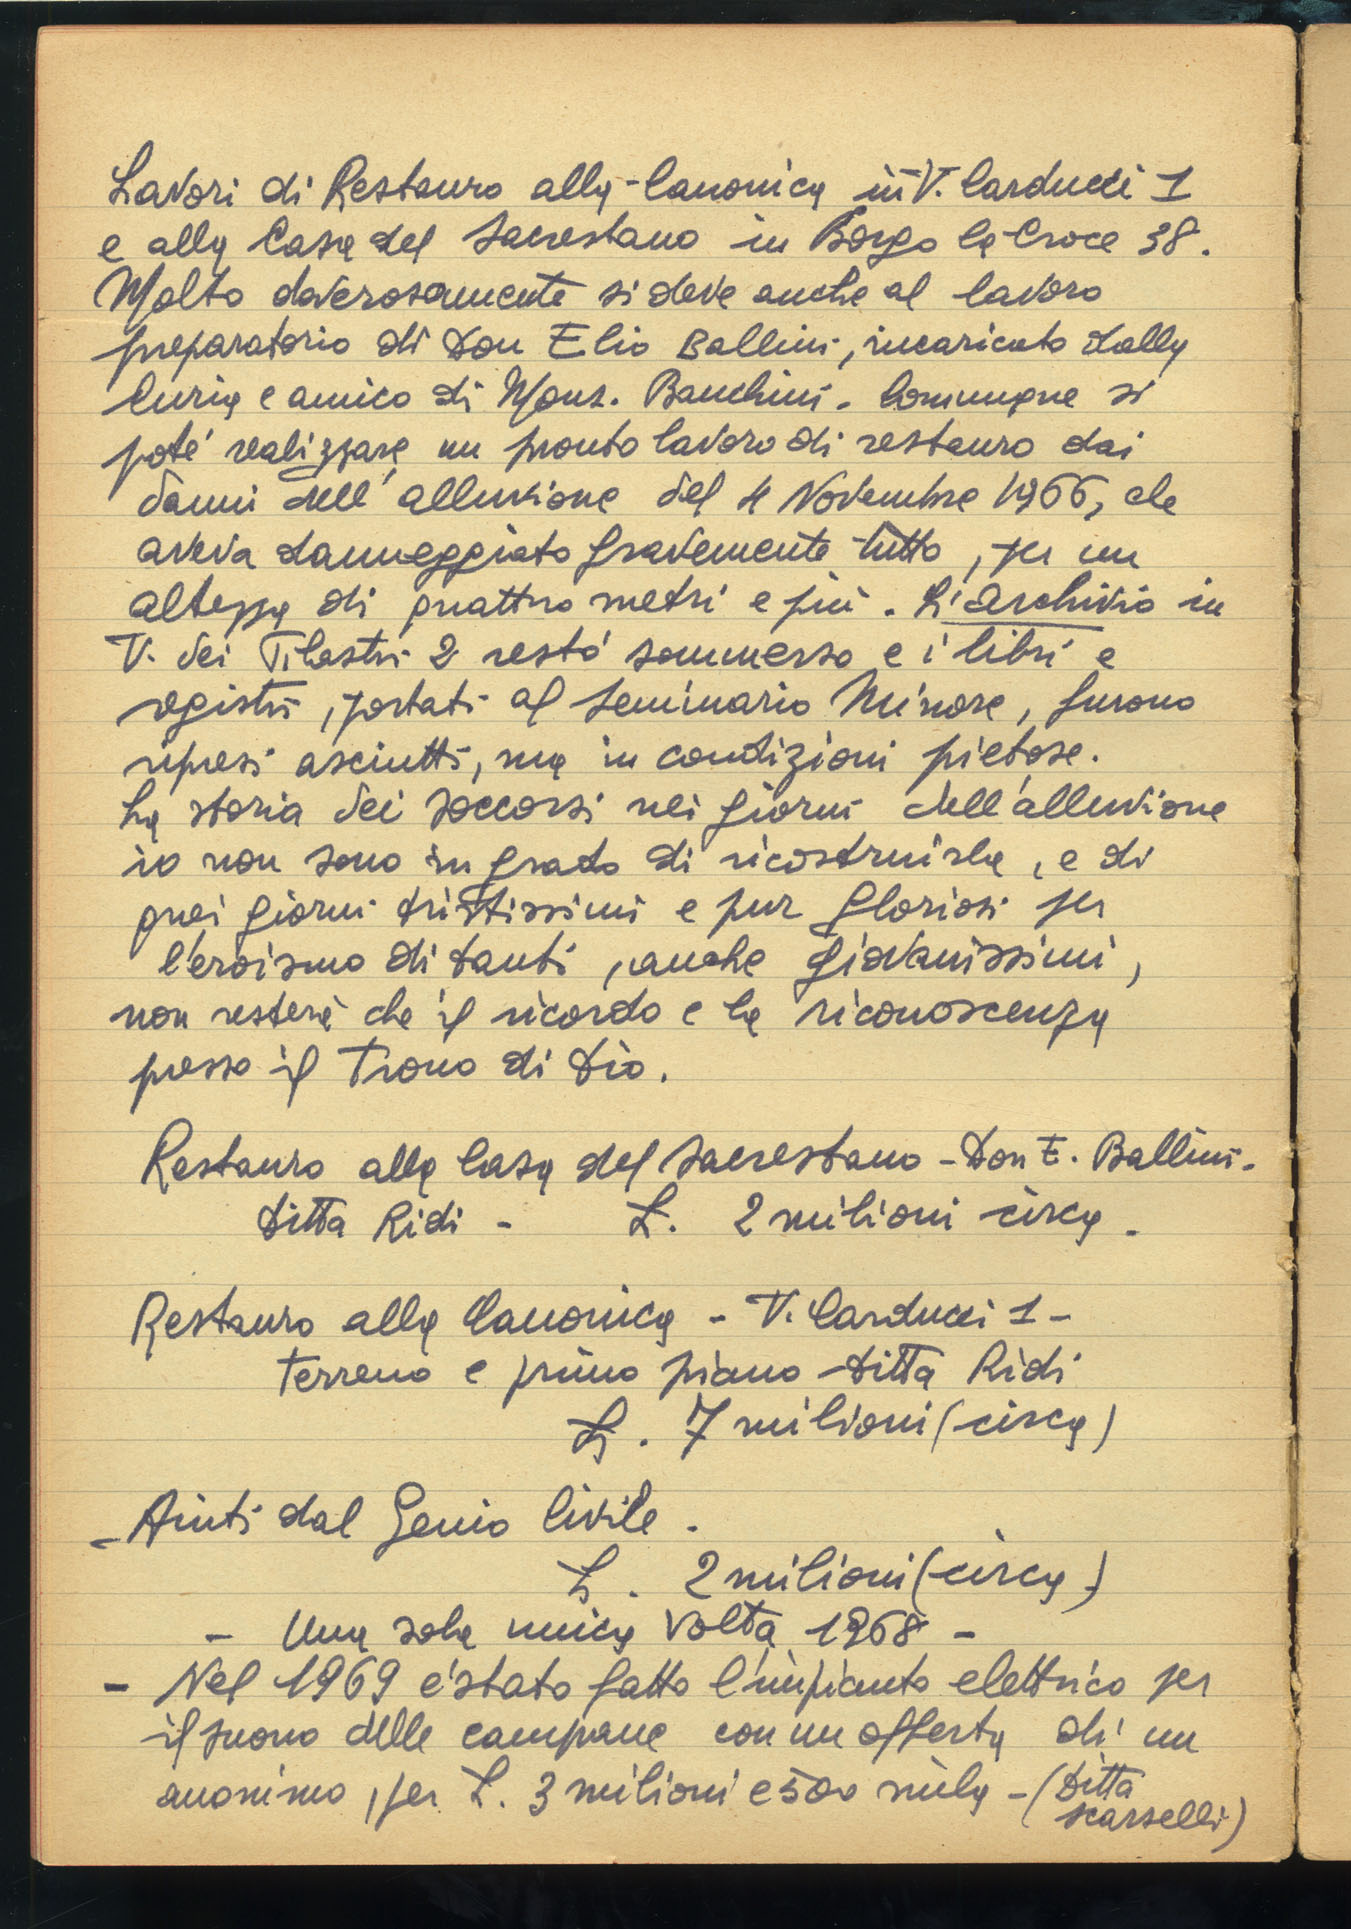 Lavori di Restauro alla Canonica in V. Carducci 1
e alla Casa del Sacrestano in Borgo la Croce 38.
Molto doverosamente si deve anche al lavoro
preparatorio di Don Elio Ballini, incaricato dalla
Curia e amico di Mons. Bauchini. Comunque si
poté realizzare un pronto lavoro di restauro dai
danni dell'alluvione del 4 Novembre 1966, che
aveva danneggiato gravemente tutto, per un
altezza di quattro metri e più. L'archivio in
V. dei Pilastri 2 restò sommerso e i libri e
registri, portati al Seminario Minore, furono
ripresi asciutti, ma in condizioni pietose.
La storia dei soccorsi nei giorni dell'alluvione
io non sono in grado di ricostruirla, e di
quei giorni tristissimi e pur gloriosi per
l'eroismo di tanti, anche giovanissimi,
non resterà che il ricordo e la riconoscenza
presso il Trono di Dio.
Restauro alla Casa del Sacrestano - Don E. Ballini -
Ditta Ridi - L. 2 milioni circa -
Restauro alla Canonica - V. Carducci 1 -
terreno e primo piano - Ditta Ridi
L. 7 milioni (circa)
- Aiuti dal Genio Civile.
L. 2 milioni (circa)
- Una sola unica volta 1968 -
- Nel 1969 é stato fatto l'impianto elettrico per
il suono delle campane con un offerta di un
anonimo, per L. 3 milioni e 500 mila - (Ditta
Scarselli)